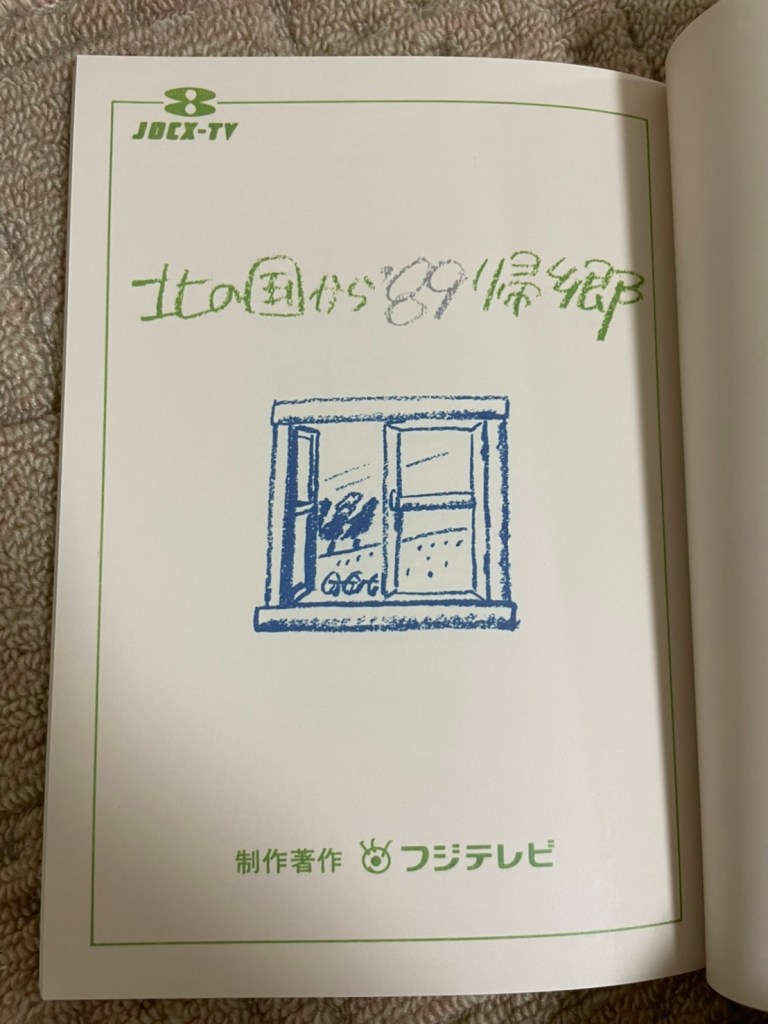 8
JOCX-TV
北の国から'89帰郷
制作著作 フジテレビ